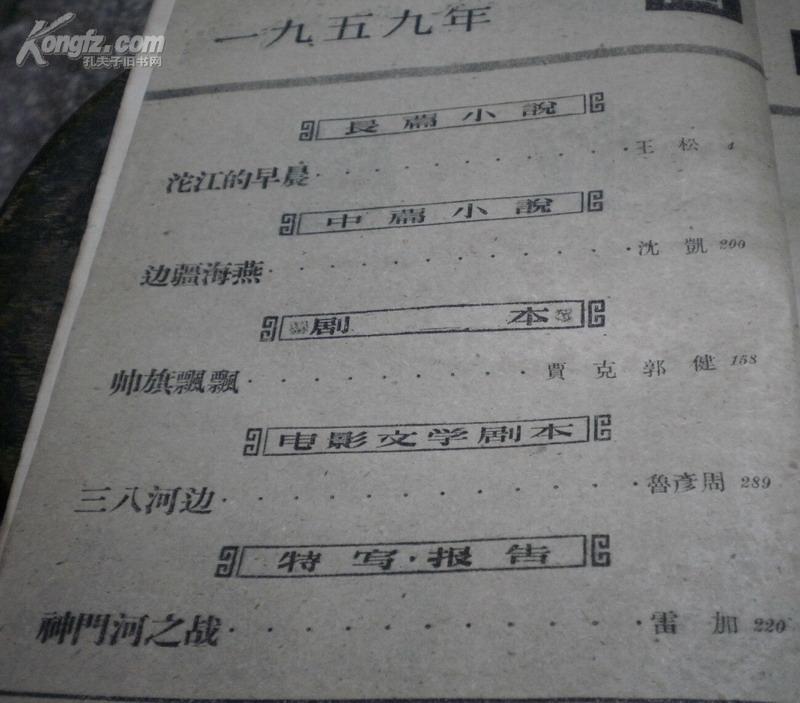 Kongfz.com
孔夫子旧书网
一九五九年
長篇小說
沱江的早晨 王松 4
中篇小說
边疆海燕 沈凱 200
剧本
帅旗飄飄 賈克 郭健 158
电影文学剧本
三八河边 魯彥周 289
特写·报告
神門河之战 雷加 220